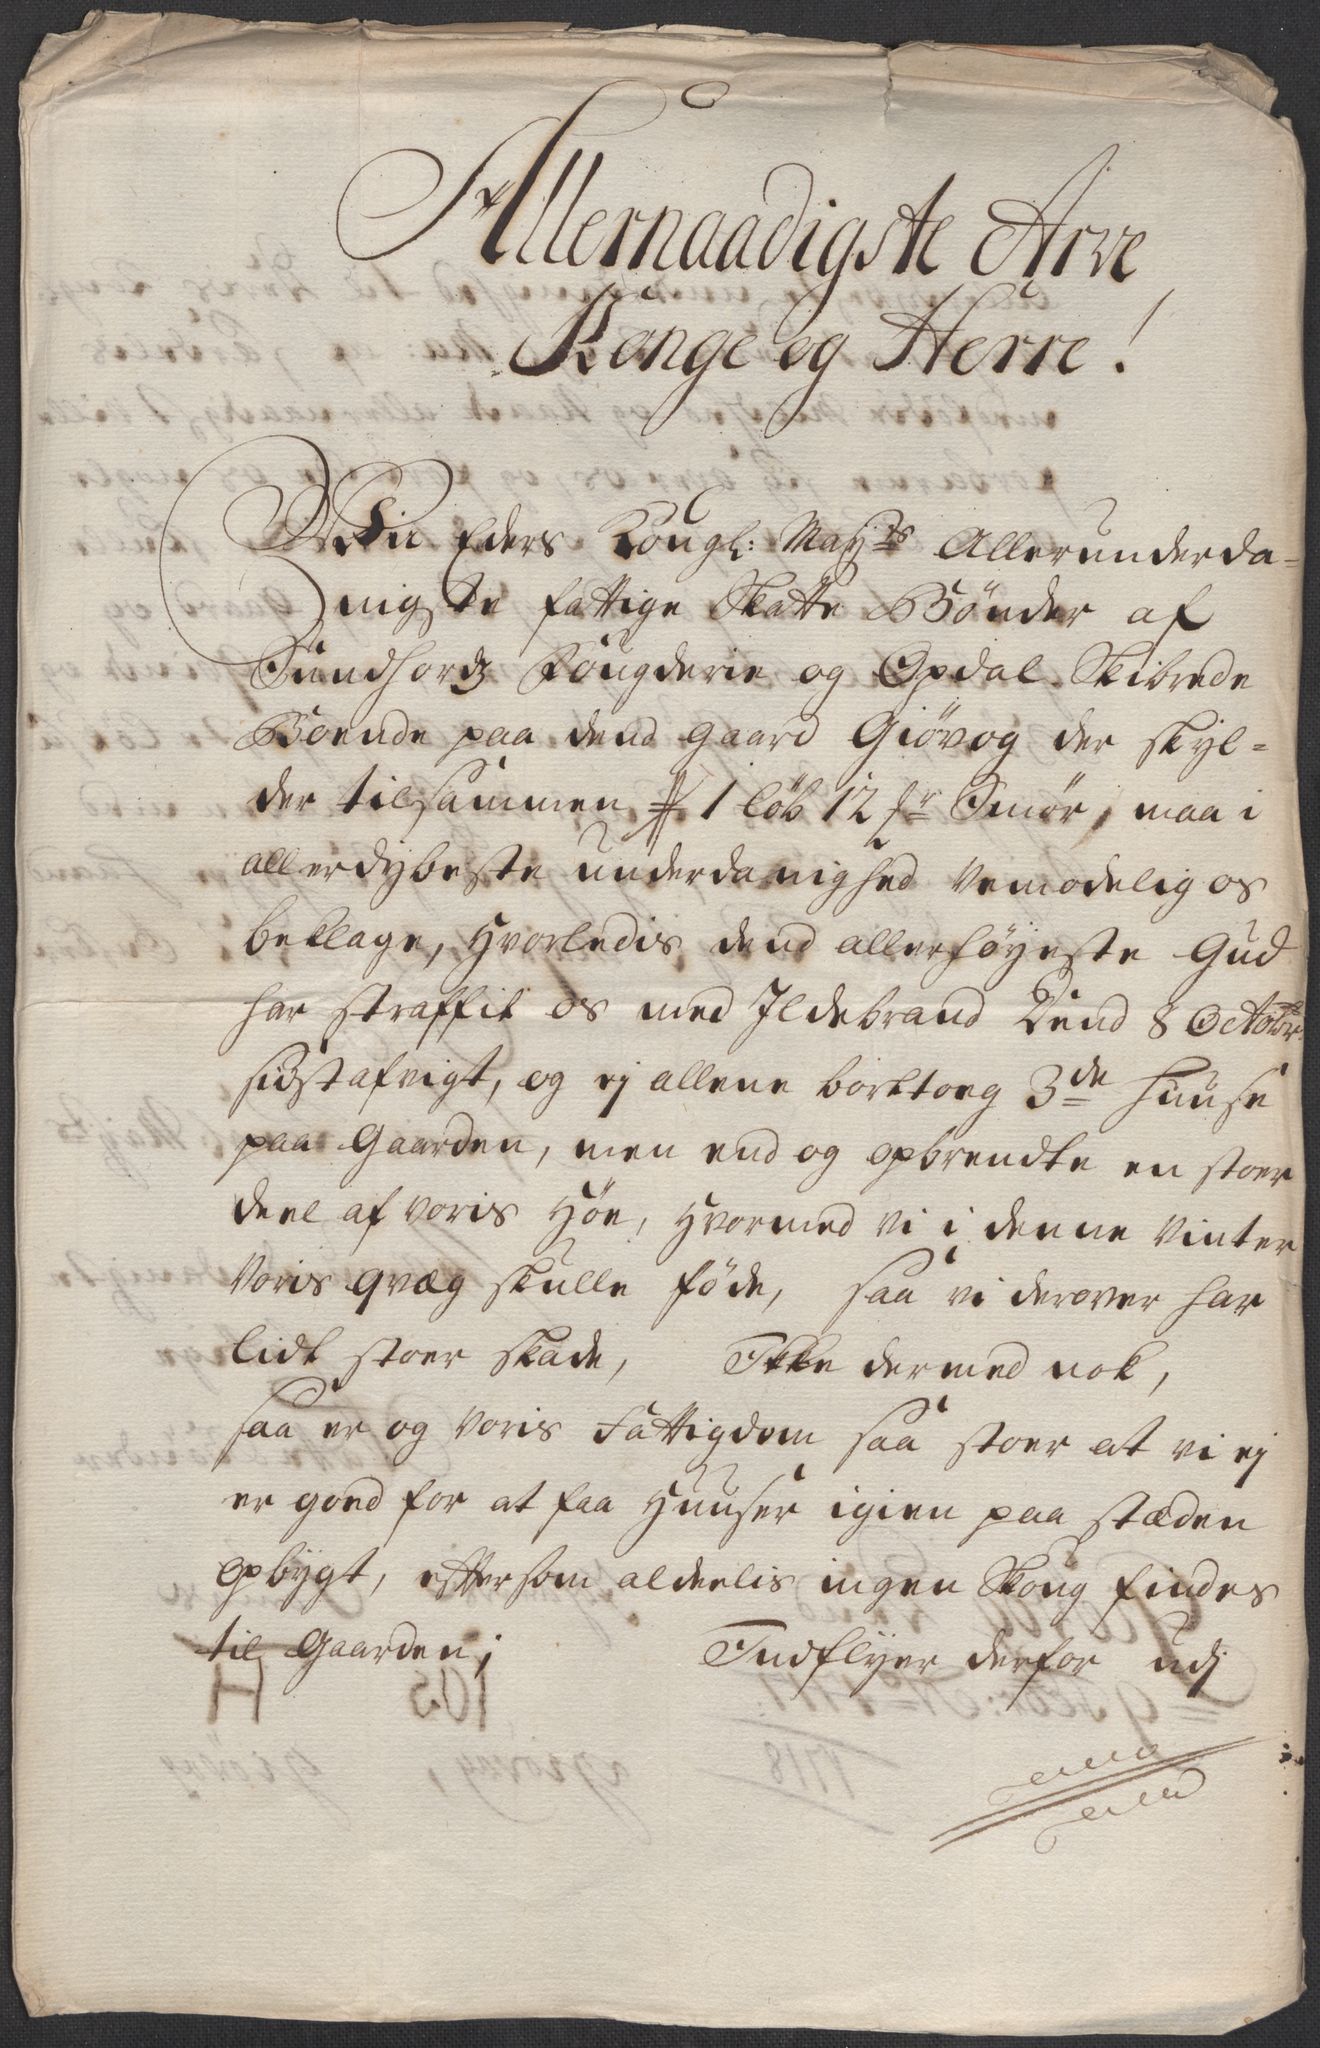 Allernaadigste Arve
Konge og Herre!
Wii Eders Kongl: Mayts Allerunderda=
nigste fattige Skatte Bønder af
Sundhordz Fougderie og Opdal Skibrede
Boende paa dend gaard Giøvog der skyl=
der tilsammen 1 løb 12 mr Smør, maa i
allerdybeste underdanighed vemodelig os
beklage, hvorledis dend allerhøyeste Gud
har straffit os med Ildebrand Dend 8 Octobr:
sidstafvigt, og ej allene borttoeg 3de Huuse
paa Gaarden, men end og opbrendte en stoer
deel af voris Høe, hvormed vi i denne vinter
voris qvæg skulle føde, saa vi derover har
lidt stoer skade, Ikke dermed nok,
saa er og voris Fattigdom saa stoer at vi ej
er goed for at faa Huuser igien paa stæden
opbygt, eftersom aldeelis ingen Skoug findes
til Gaarden; Indflyer derfor udj